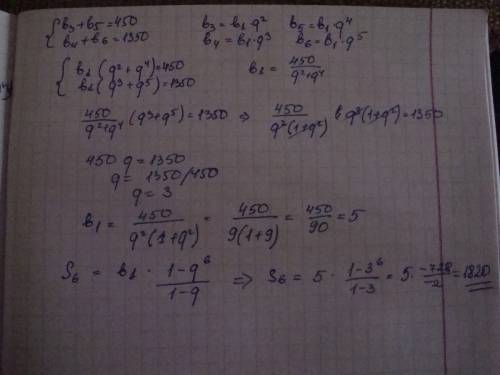 { b₃ + b₅ = 450    b₃ = b₁·q²    b₅ = b₁·q⁴
{ b₄ + b₆ = 1350    b₄ = b₁·q³    b₆ = b₁·q⁵
{ b₁(q² + q⁴) = 450    b₁ = 450/(q²+q⁴)
{ b₁(q³ + q⁵) = 1350
450/(q²+q⁴) (q³+q⁵) = 1350 ⇒ 450/(q²(1+q²)) · q³(1+q²) = 1350
450 q = 1350
q = 1350/450
q = 3
b₁ = 450/(q²(1+q²)) = 450/(9(1+9)) = 450/90 = 5
S₆ = b₁ · (1−q⁶)/(1−q) ⇒ S₆ = 5 · (1−3⁶)/(1−3) = 5 · −728/−2 = 1820